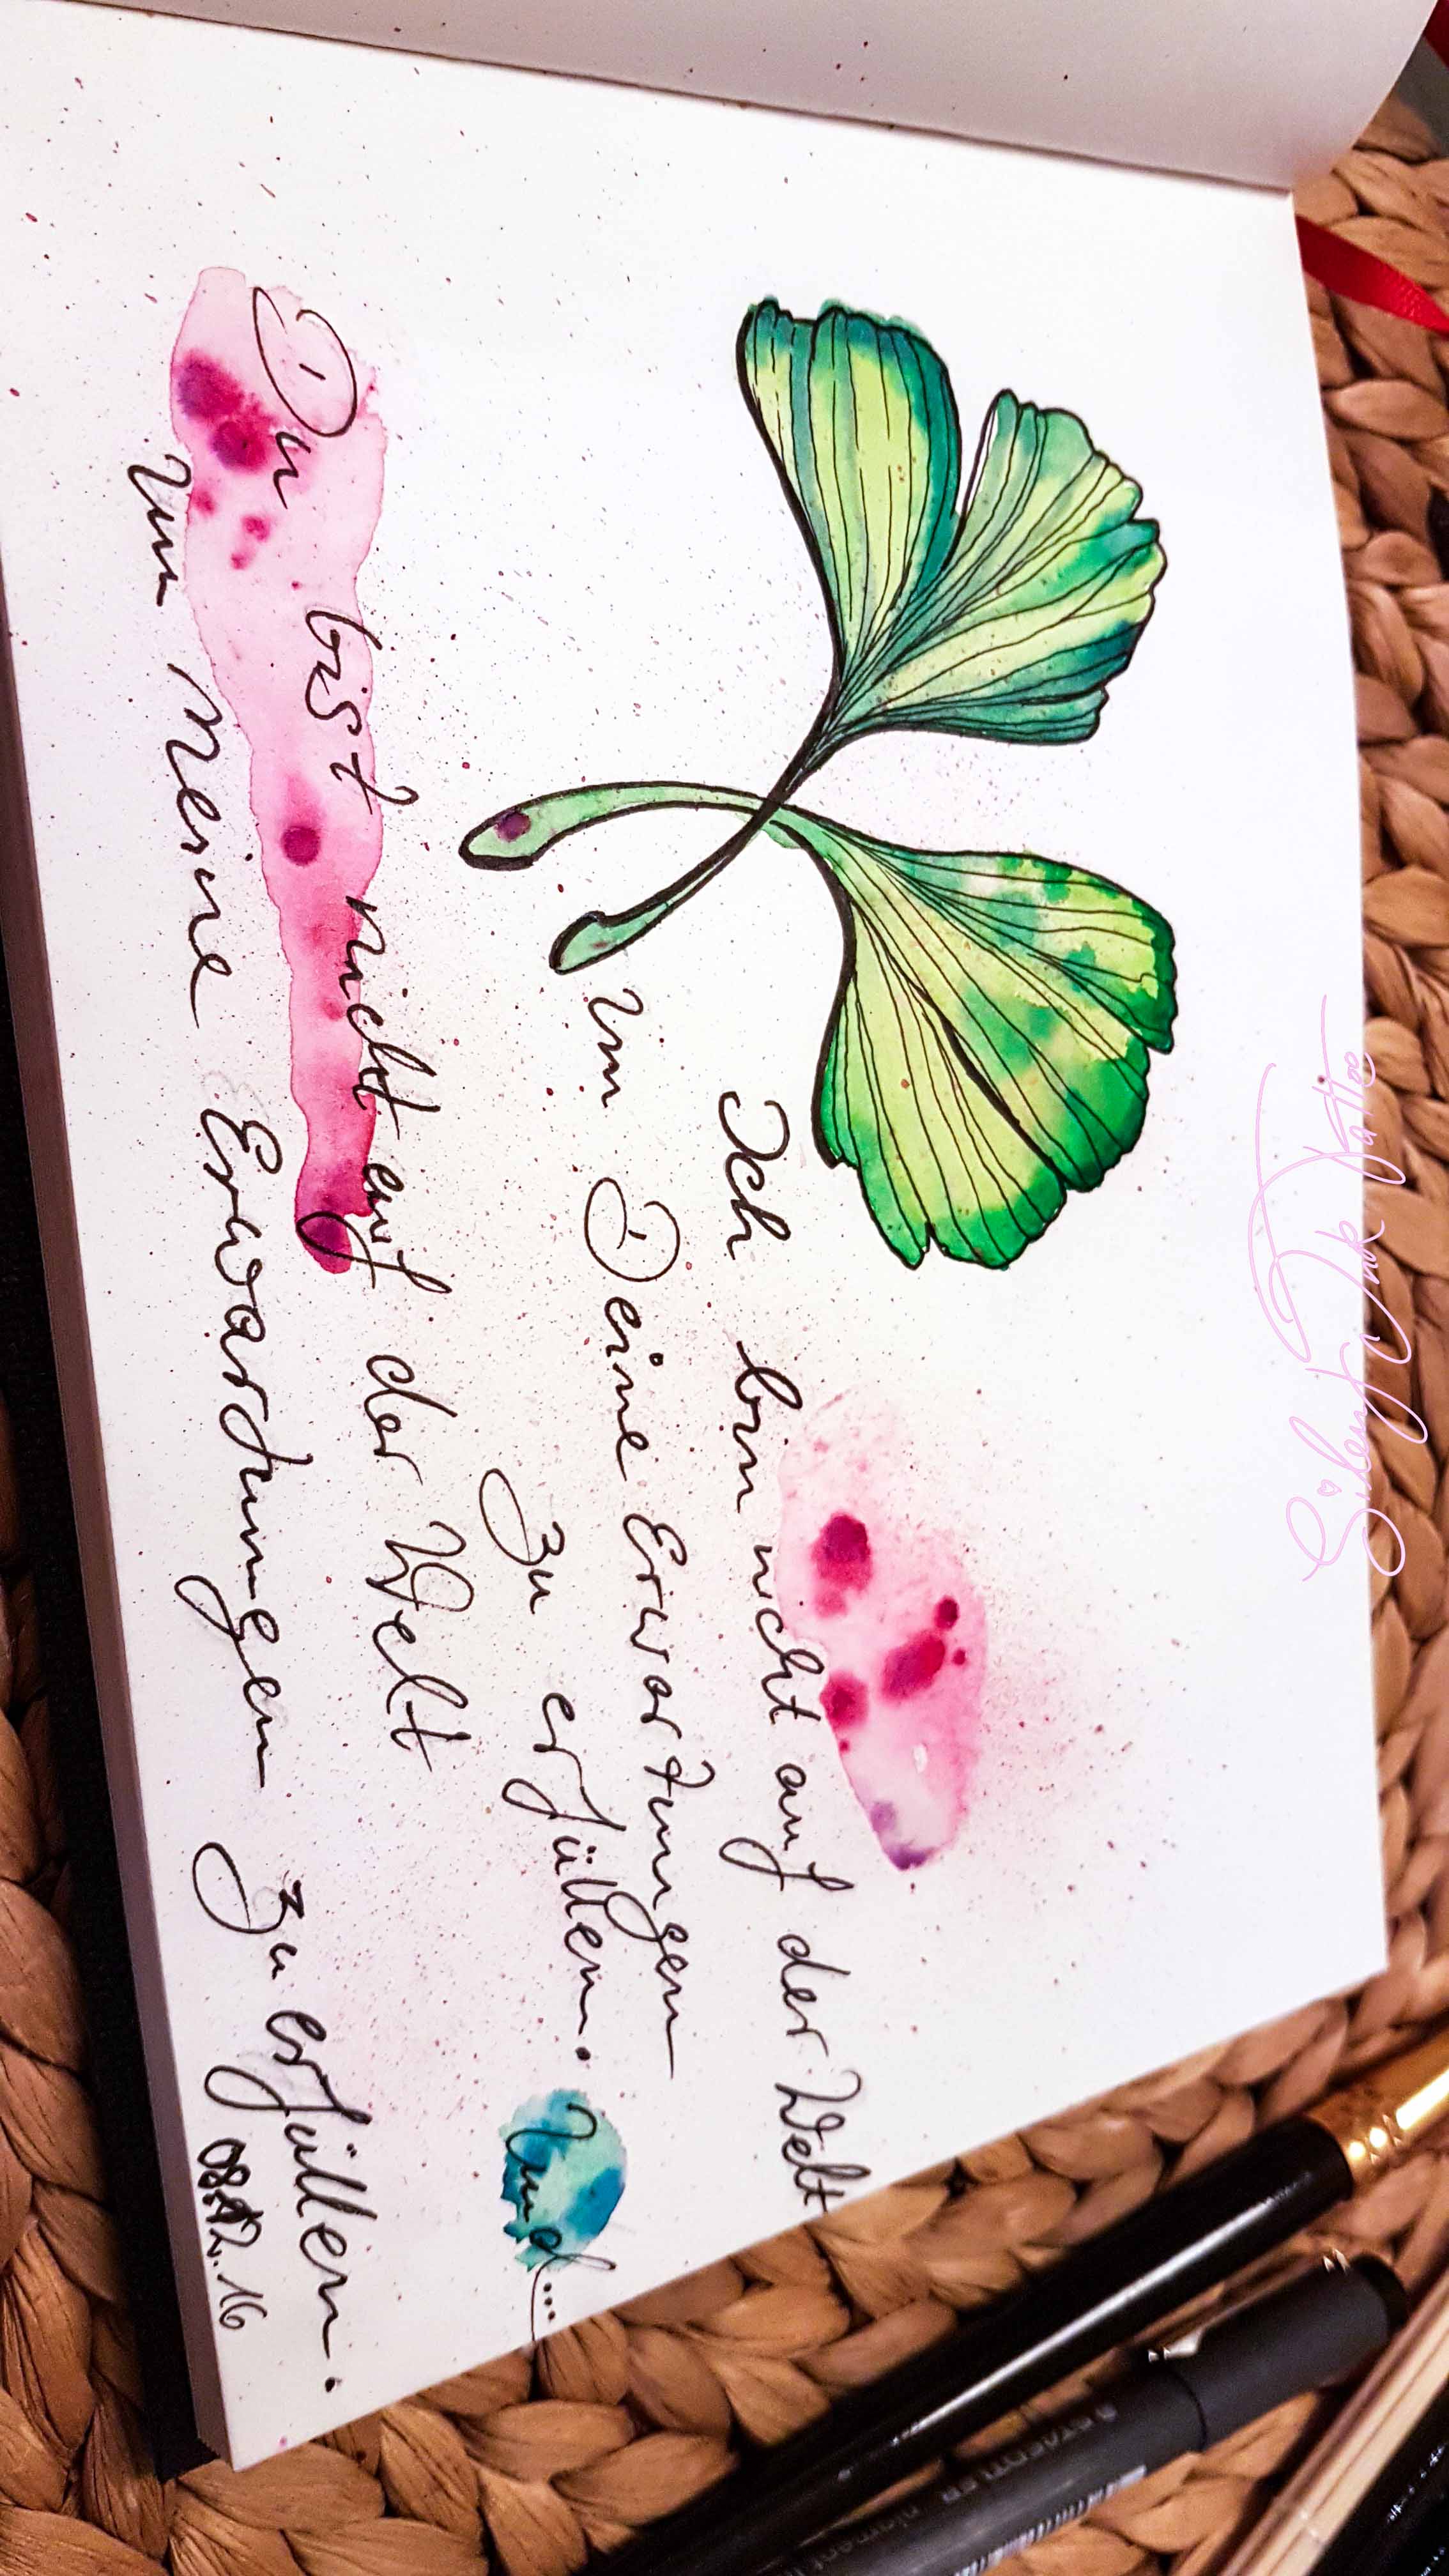 Ich bin nicht auf der Welt
um Deine Erwartungen
zu erfüllen.
Und...
Du bist nicht auf der Welt
um Meine Erwartungen zu erfüllen.
STAEDTLER pigment